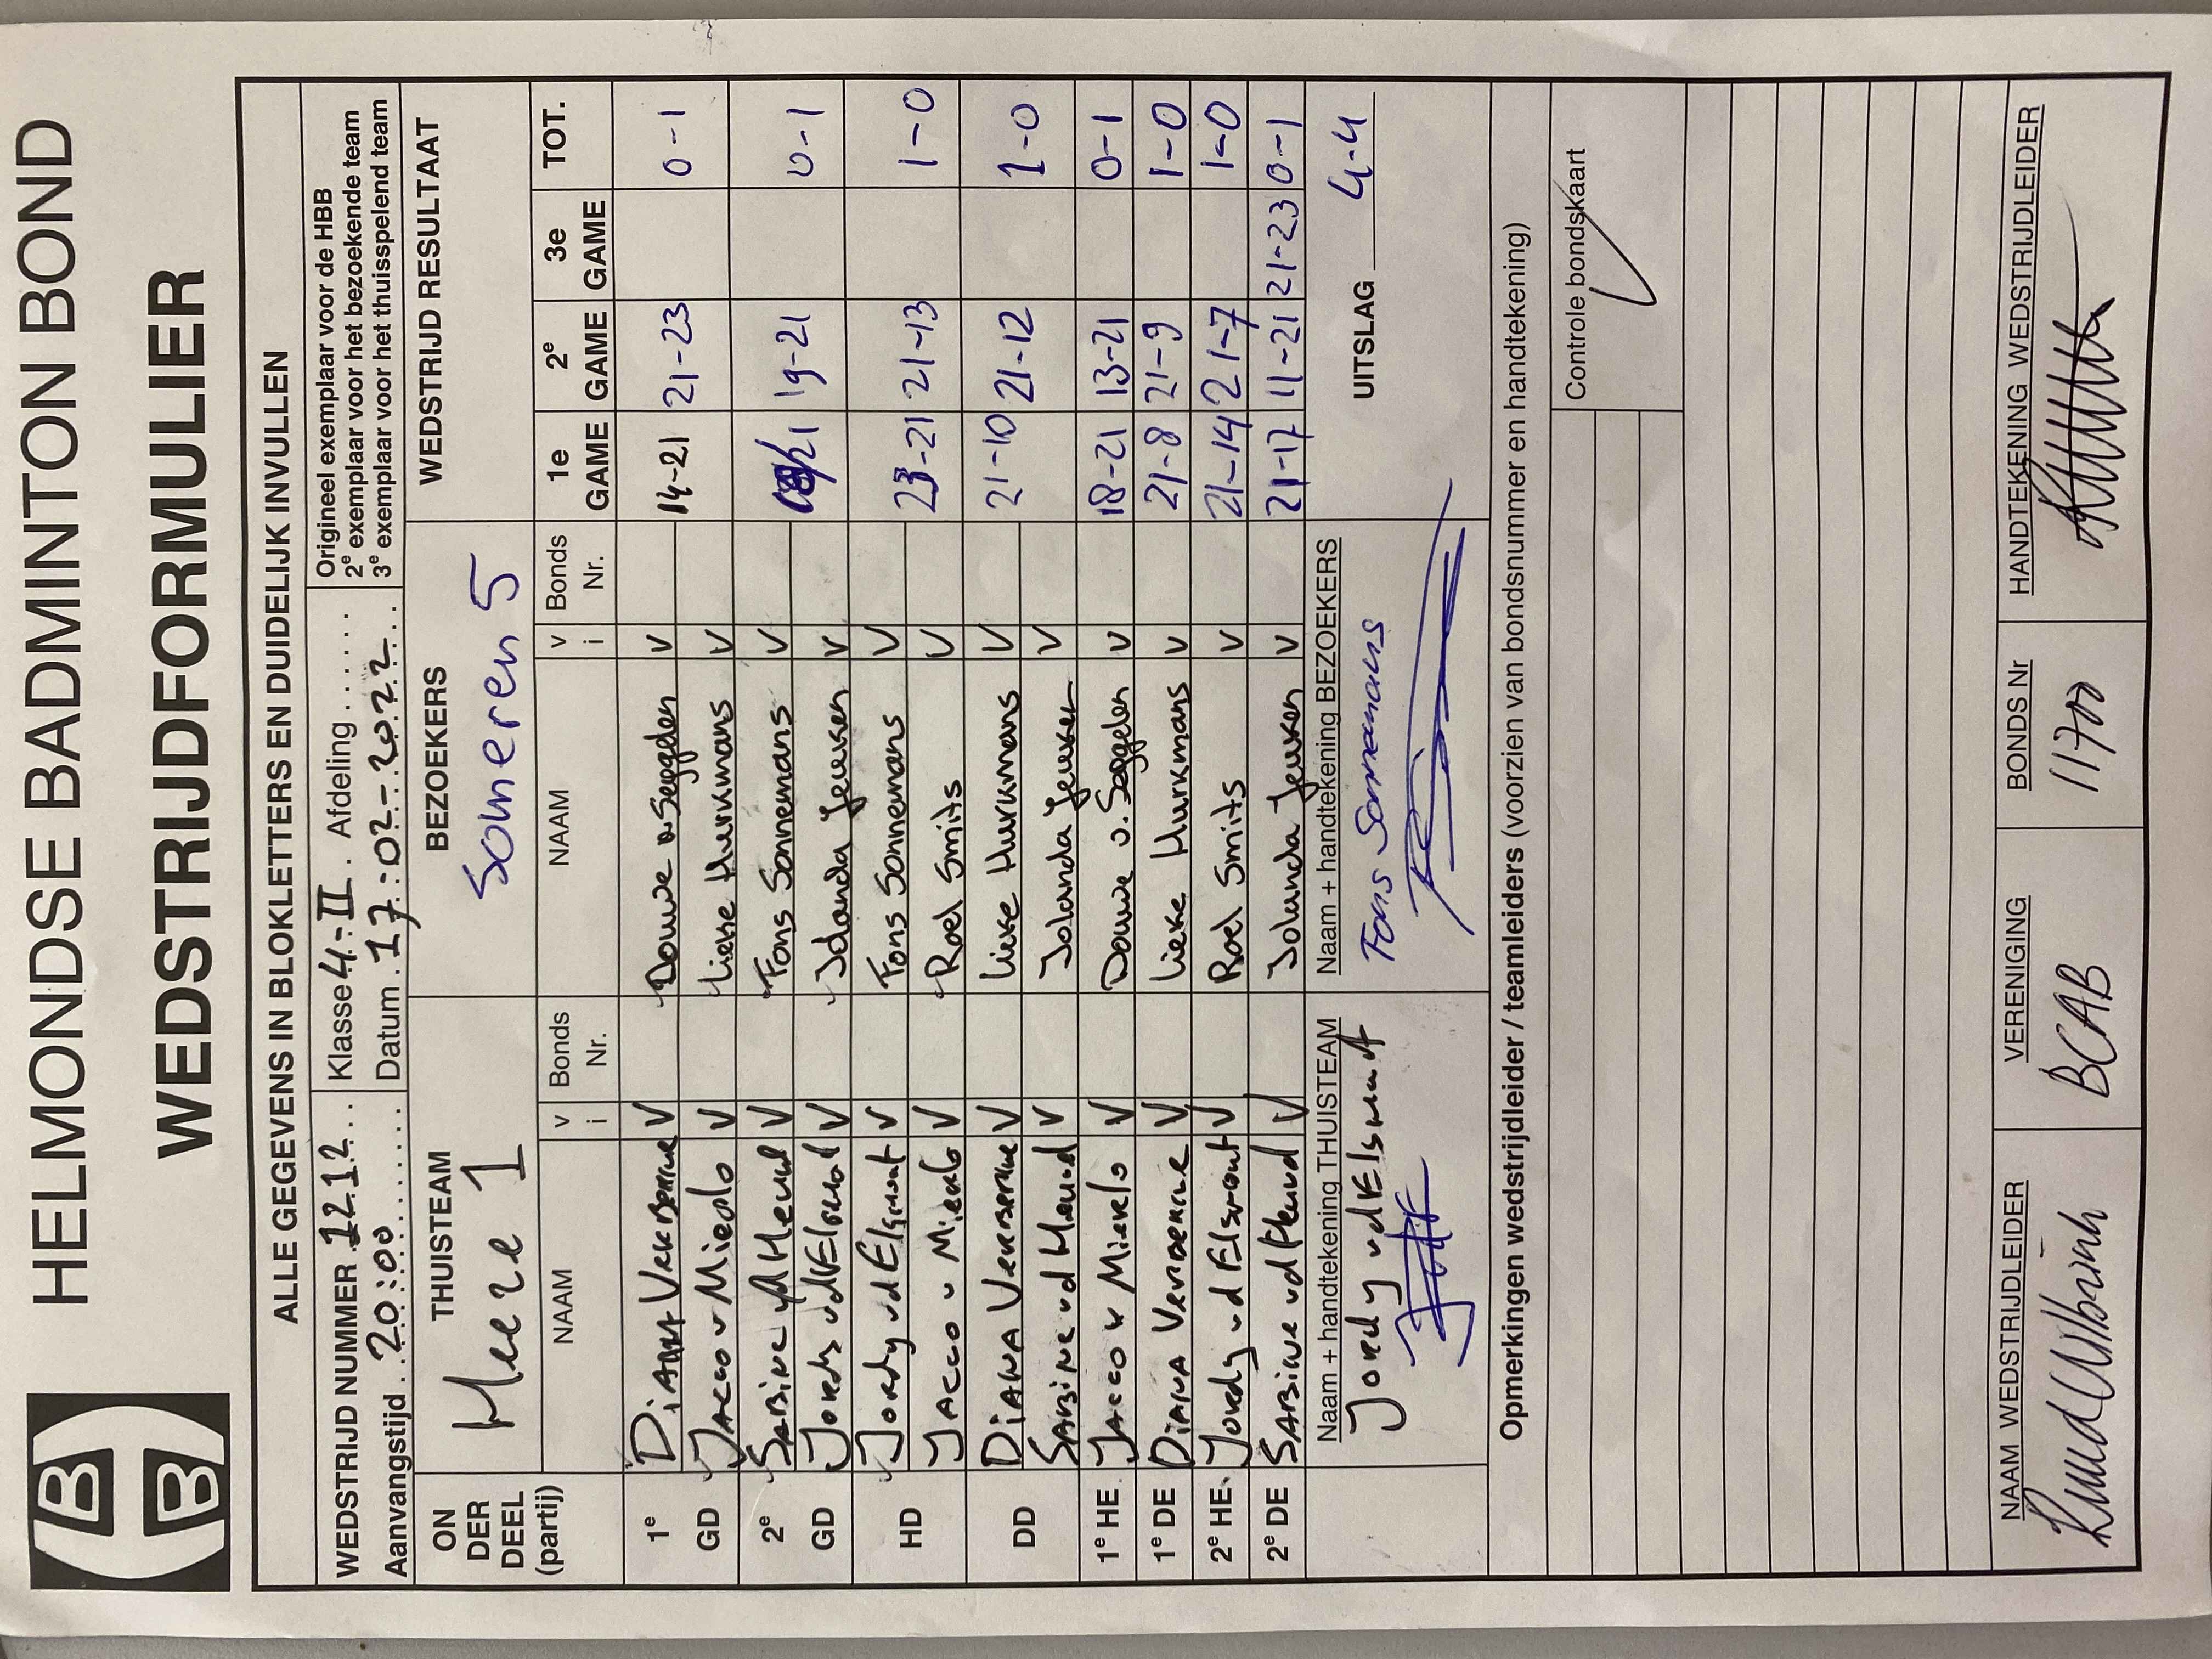 HELMONDSE BADMINTON BOND
WEDSTRIJDFORMULIER
ALLE GEGEVENS IN BLOKLETTERS EN DUIDELIJK INVULLEN
WEDSTRIJD NUMMER 1212 Klasse 4-II Afdeling ...... Origineel exemplaar voor de HBB
2e exemplaar voor het bezoekende team
Aanvangstijd 20:00 Datum 17-02-2022 3e exemplaar voor het thuisspelend team
ON DER DEEL (partij) THUISTEAM BEZOEKERS WEDSTRIJD RESULTAAT
Heeze 1 Someren 5
NAAM v i Bonds Nr. NAAM v i Bonds Nr. 1e GAME 2e GAME 3e GAME TOT.
1e GD Diana Verberne V Douwe v. Seggelen V 14-21 21-23 0-1
Jacco v Mierlo V Lieke Hurkmans V
2e GD Sabine vd Heuvel V Fons Sonnemans V 21 19-21 0-1
Jordy vd Elshout V Jolanda Jeuken V
HD Jordy vd Elshout V Fons Sonnemans V 23-21 21-13 1-0
Jacco v Mierlo V Roel Smits V
DD Diana Verberne V Lieke Hurkmans V 21-10 21-12 1-0
Sabine vd Heuvel V Jolanda Jeuken V
1e HE Jacco v Mierlo V Douwe v. Seggelen V 18-21 13-21 0-1
1e DE Diana Verberne V Lieke Hurkmans V 21-8 21-9 1-0
2e HE Jordy vd Elshout V Roel Smits V 21-14 21-7 1-0
2e DE Sabine vd Heuvel V Jolanda Jeuken V 21-17 11-21 21-23 0-1
Naam + handtekening THUISTEAM Naam + handtekening BEZOEKERS
Jordy vd Elshout Fons Sonnemans UITSLAG 4-4
Opmerkingen wedstrijdleider / teamleiders (voorzien van bondsnummer en handtekening)
Controle bondskaart
NAAM WEDSTRIJDLEIDER VERENIGING BONDS Nr HANDTEKENING WEDSTRIJDLEIDER
Ruud BCAB 11700